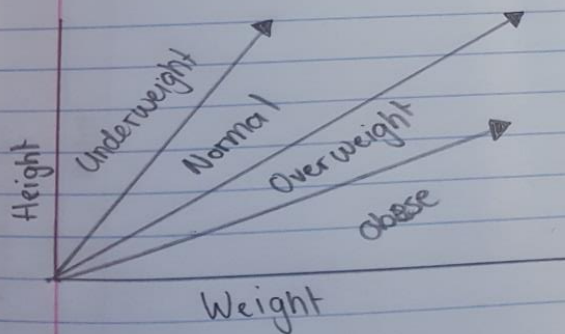 Height
Underweight
Normal
Overweight
obese
Weight